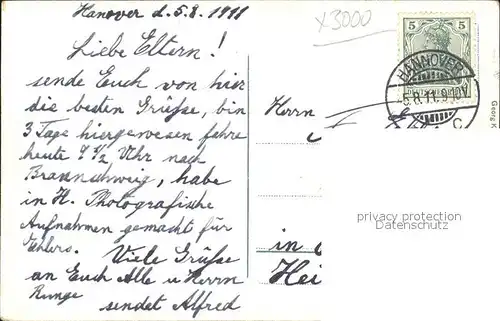 Hanover d. 5.8.1911
x3000
Liebe Eltern!
sende Euch von hier
die besten Grüsse, bin
3 Tage hiergewesen fahre
heute 7 1/2 Uhr nach
Braunschweig, habe
in H. Photografische
Aufnahmen gemacht für
Ehlers. Viele Grüsse
an Euch Alle u Herrn
Runge sendet Alfred
5 5
HANNOVER
Herrn
in
Hei
Georg K
privacy protection
Datenschutz